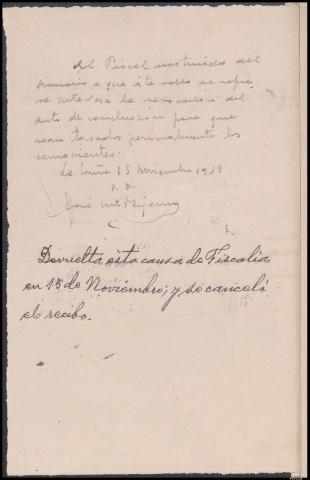 El Fiscal instruido del
sumario a que este rollo se refie
re interesa la revocación del
auto de conclusion para que
sean tasados pericialmente los
semovientes.
La Coruña 15 Noviembre 1913
P. D.
José
Devuelta esta causa de Fiscalia
en 15 de Noviembre; y se canceló
el recibo.